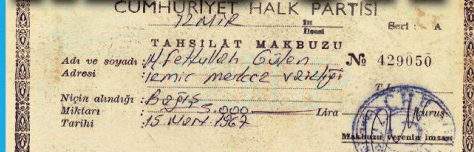 CUMHURİYET HALK PARTİSİ
İZMİR İli Seri : A
İlçesi
TAHSİLÂT MAKBUZU
Adı ve soyadı : Fetullah Gülen № 429050
Adresi : izmir merkez vaizliği
T.L.
Niçin alındığı : Bağış
Miktarı : 5.000 Lira Kuruş
Tarihi : 15 Mart 1967
Makbuzu verenin imzası